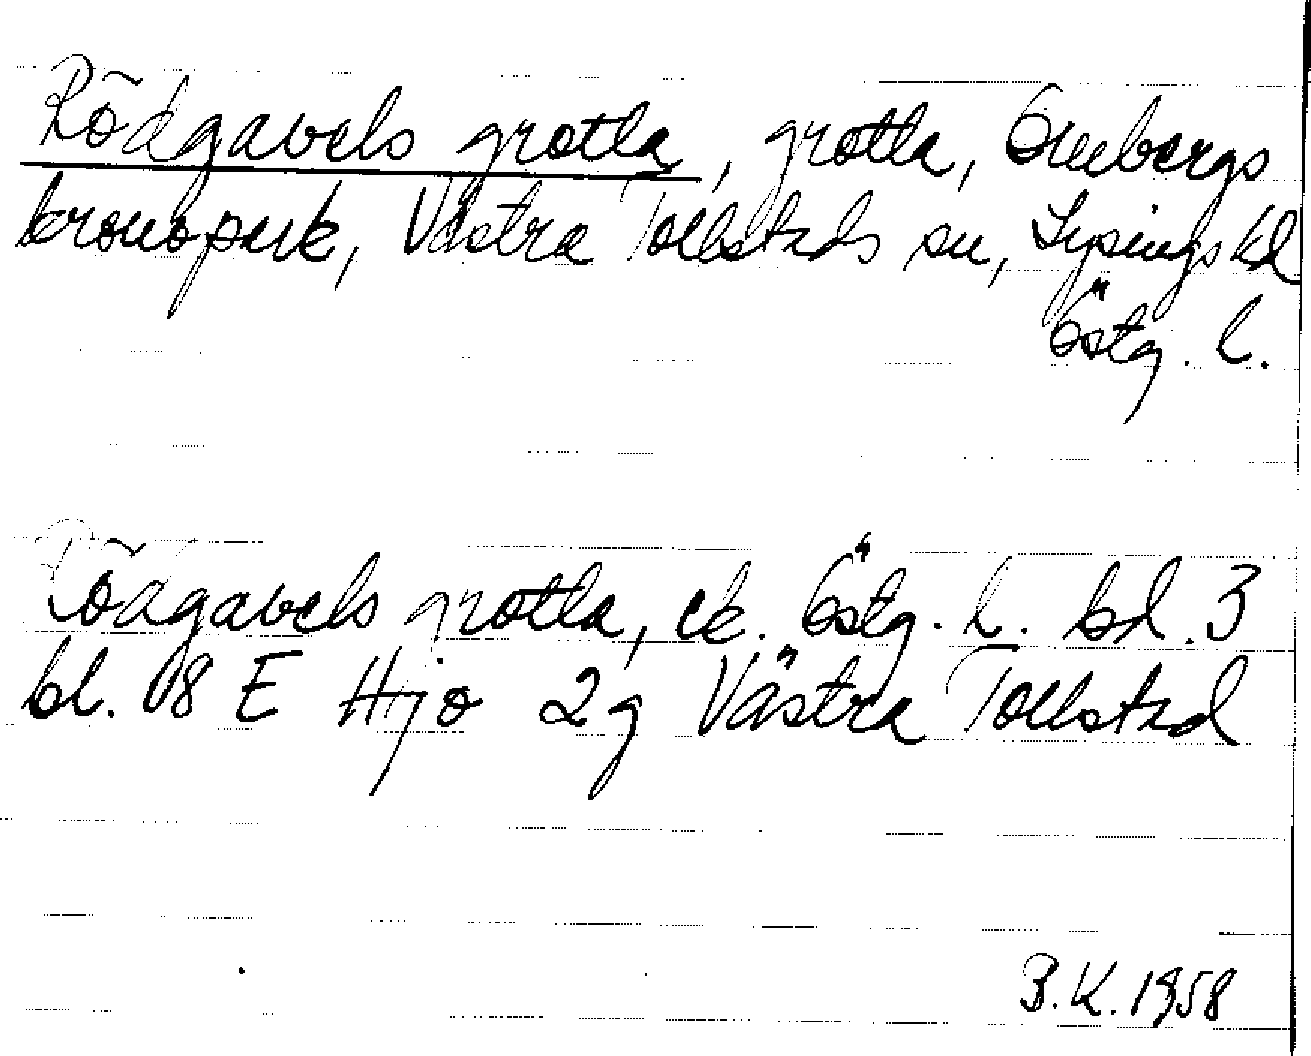 Rödgavels grotta, grotta, Ombergs
kronopark, Västra Tollstads sn, Lysings hd
Östg. l.
Rödgavels grotta, ek. Östg. l. bl. 3
bl. 08 E Hjo 2g Västra Tollstad
B.K. 1958